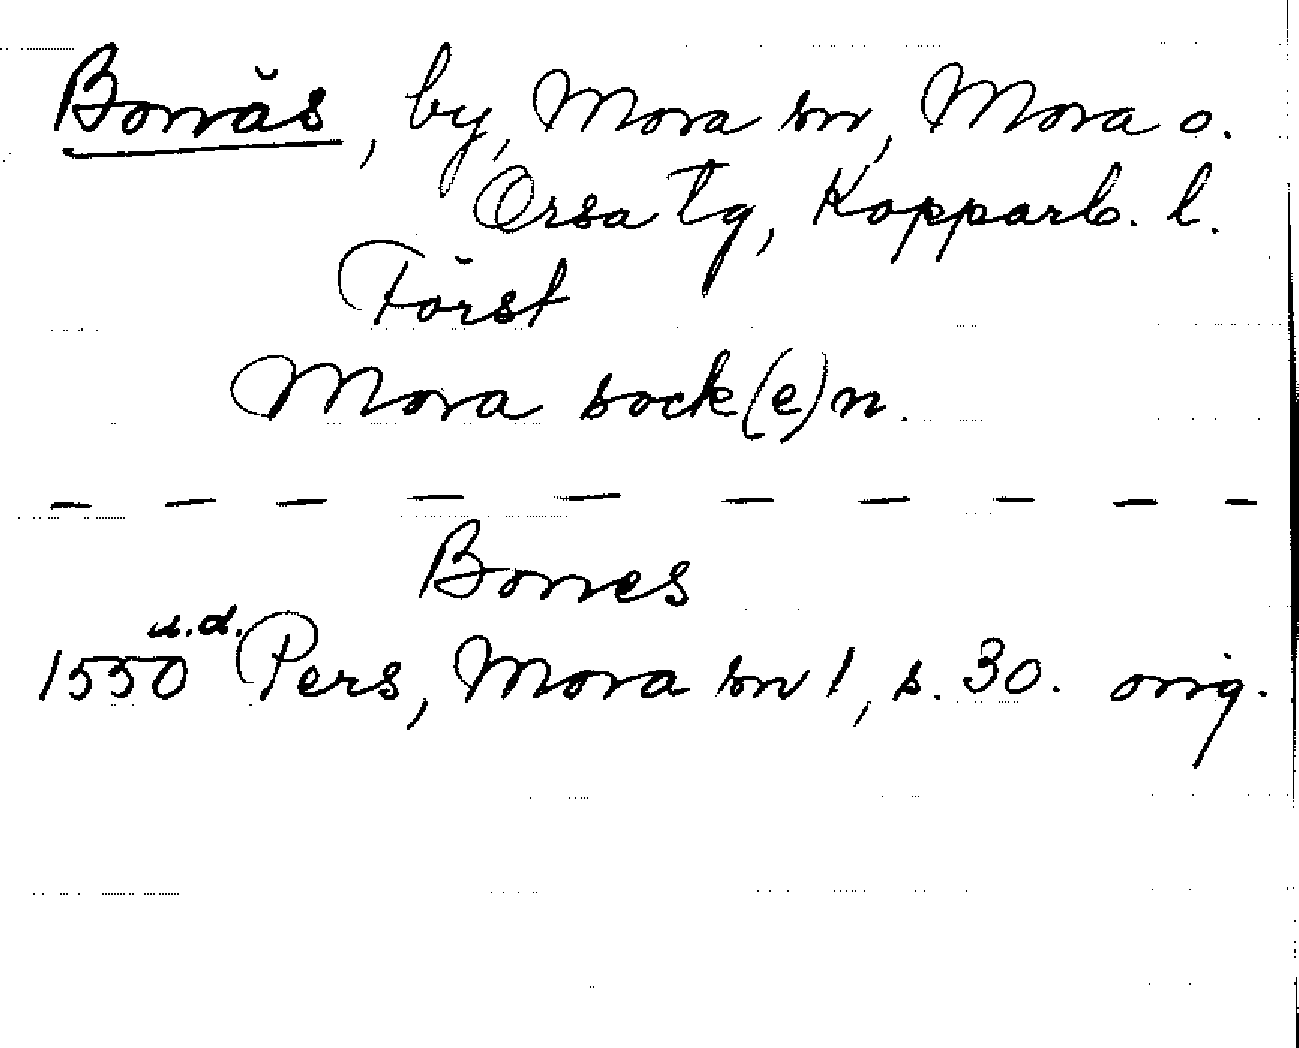 Bonäs, by, Mora sn, Mora o.
Orsa tg, Kopparb. l.
Först
Mora sock(e)n.
Bones
1550 u.d. Pers, Mora sn 1, s. 30. orig.